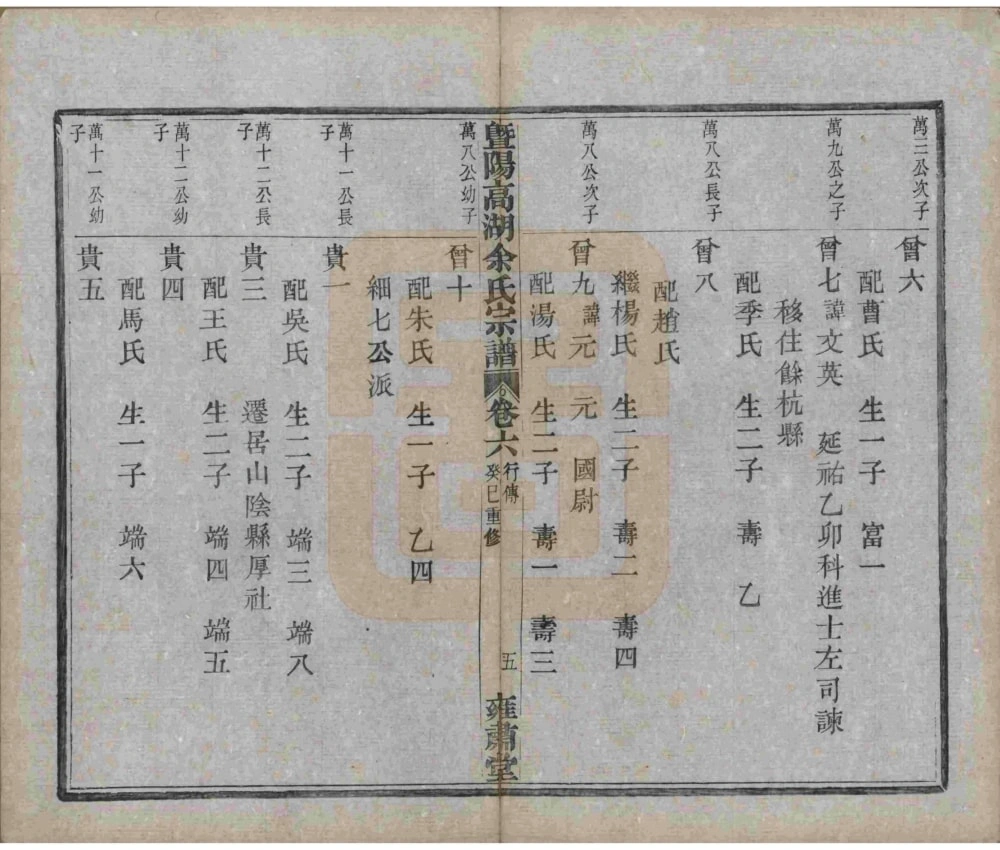 萬三公次子
曾六
配曹氏 生一子 富一
萬九公之子
曾七 諱文英 延祐乙卯科進士左司諫
移住餘杭縣
配季氏 生二子 壽 乙
萬八公長子
曾八
配趙氏
繼楊氏 生二子 壽二 壽四
萬八公次子
曾九 諱元 元 國尉
配湯氏 生二子 壽一 壽三
暨陽高湖余氏宗譜 卷六 行傳 癸巳重修 五 雍肅堂
萬八公幼子
曾十
配朱氏 生一子 乙四
細七公派
萬十一公長子
貴一
配吳氏 生二子 端三 端八
萬十二公長子
貴三 遷居山陰縣厚社
配王氏 生二子 端四 端五
萬十二公幼子
貴四
配馬氏 生一子 端六
萬十一公幼子
貴五